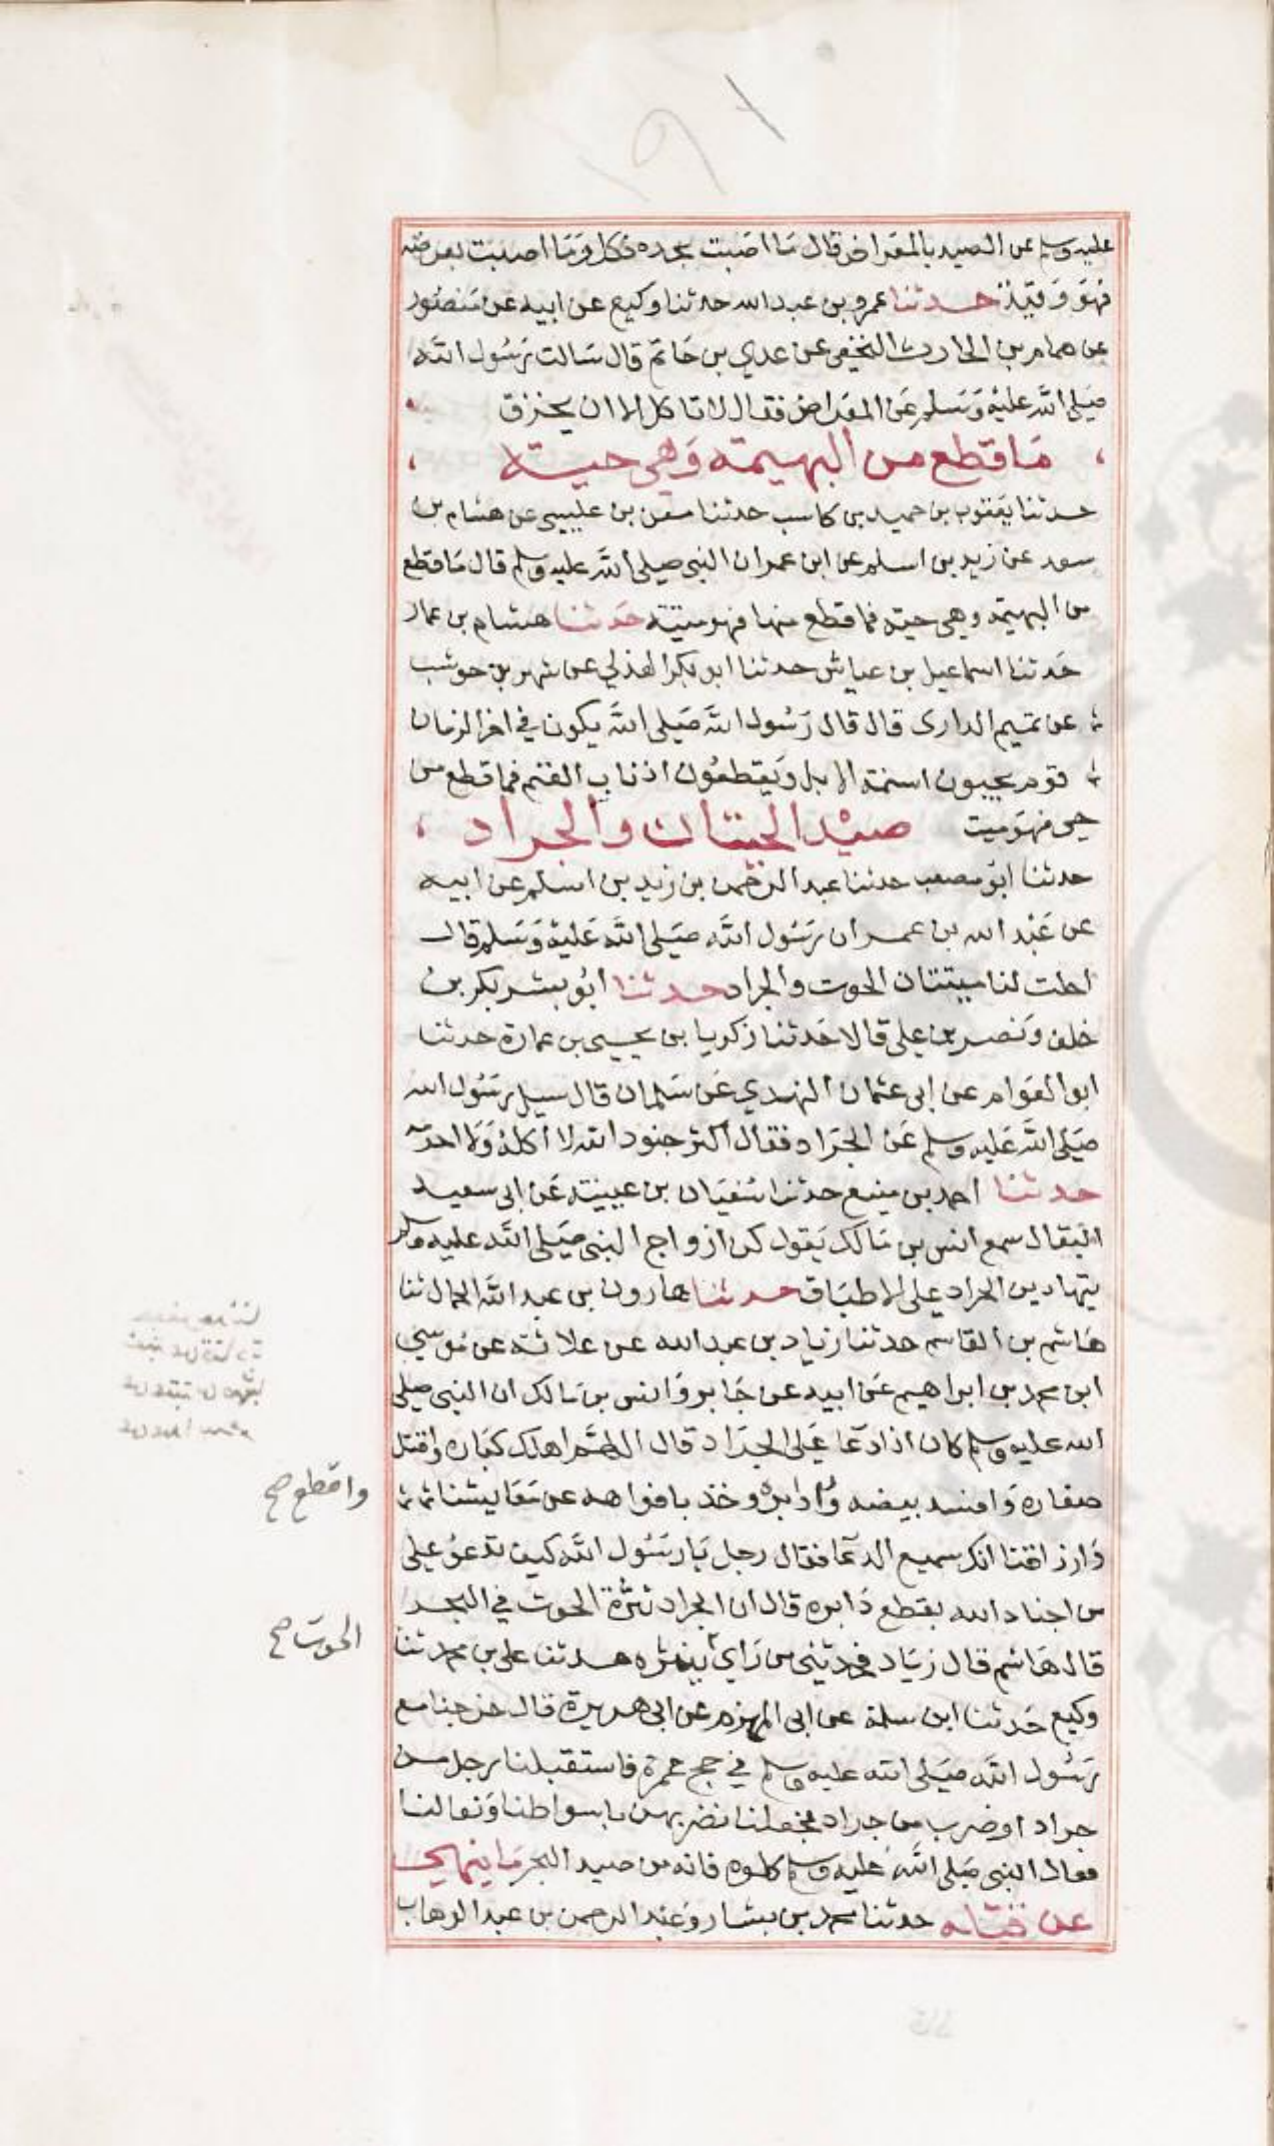 عليه وسلم عن الصيد بالمعراض قال ما اصبت بحده فكل وما اصبت بعرضه
فهو وقيذ حدثنا عمرو بن عبد الله حدثنا وكيع عن ابيه عن منصور
عن همام بن الحارث النخعي عن عدي بن حاتم قال سالت رسول الله
صلى الله عليه وسلم عن المعراض فقال لا تاكل الا ان يخزق
ما قطع من البهيمة وهي حية
حدثنا يعقوب بن حميد بن كاسب حدثنا معن بن عيسى عن هشام بن
سعد عن زيد بن اسلم عن ابن عمر ان النبي صلى الله عليه وسلم قال ما قطع
من البهيمة وهي حية فما قطع منها فهو ميتة حدثنا هشام بن عمار
حدثنا اسماعيل بن عياش حدثنا ابو بكر الهذلي عن شهر بن حوشب
عن تميم الداري قال قال رسول الله صلى الله يكون في اخر الزمان
قوم يجبون اسنمة الابل ويقطعون اذناب الغنم فما قطع من
حي فهو ميت صيد الحيتان والجراد
حدثنا ابو مصعب حدثنا عبد الرحمن بن زيد بن اسلم عن ابيه
عن عبد الله بن عمر ان رسول الله صلى الله عليه وسلم قال
احلت لنا ميتتان الحوت والجراد حدثنا ابو بشر بكر بن
خلف ونصر بن علي قالا حدثنا زكريا بن يحيى بن عمارة حدثنا
ابو العوام عن ابي عثمان النهدي عن سلمان قال سيل رسول الله
صلى الله عليه وسلم عن الجراد فقال اكثر جنود الله لا اكله ولا احرمه
حدثنا احمد بن منيع حدثنا سفيان بن عيينة عن ابي سعيد
البقال سمع انس بن مالك يقول كن ازواج النبي صلى الله عليه وسلم
يتهادين الجراد على الاطباق حدثنا هارون بن عبد الله الحمال ثنا
هاشم بن القاسم حدثنا زياد بن عبد الله عن علاثة عن موسى
ابن محمد بن ابراهيم عن ابيه عن جابر وانس بن مالك ان النبي صلى
الله عليه وسلم كان اذا دعا على الجراد قال اللهم اهلك كباره واقتل
صغاره وافسد بيضه دابره وخذ بافواهه عن معايشنا
واقطع صح
وارزاقنا انك سميع الدعا فقال رجل يا رسول الله كيف تدعو على
من اجناد الله بقطع دابره قال ان الجراد نثرة الحوت في البحر
قال هاشم قال زياد فحدثني من راى ينثره حدثنا علي بن محمد ثنا
الحوت صح
وكيع حدثنا ابن سلمة عن ابي المهزم عن ابي هريرة قال خرجنا مع
رسول الله صلى الله عليه وسلم في حج عمرة فاستقبلنا رجل من
جراد او ضرب من جراد فجعلنا نضربهن باسواطنا ونعالنا
فقال النبي صلى الله عليه وسلم كلوه فانه من صيد البحر ما ينهى
عن قتله حدثنا محمد بن بشار وعبد الرحمن بن عبد الوهاب